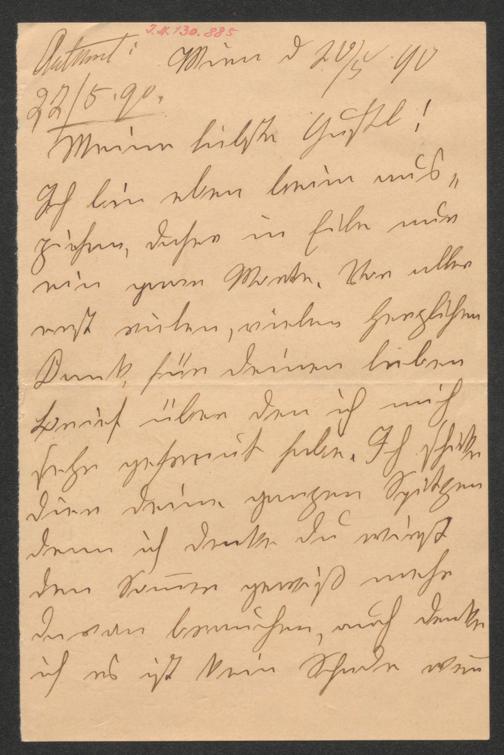 J.N. 130.885
Antwort:
Wien d 20/5 90
22/5.90.
Meine liebste Gustl!
Ich bin eben beim aus„
ziehen, daher in Eile nur
ein paar Worte. Vor aller
erst vielen, vielen herzlichen
Dank, für deinen lieben
Brief über den ich mich
sehr gefreut habe. Ich schicke
dir deine ganzen Spitzen
denn ich denke du wirst
den Sommer gewiß mehr
davon brauchen, auch denke
ich es ist kein Schade wenn